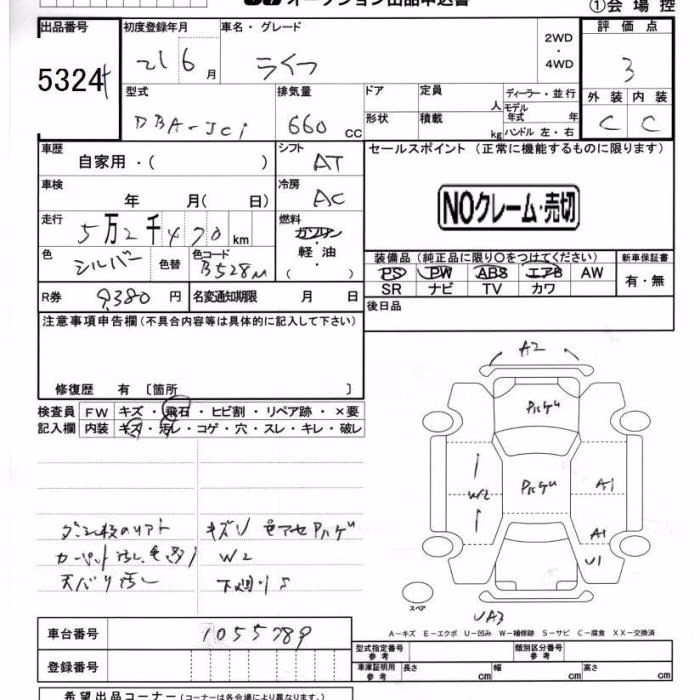 オークション出品申込書
①会場控
出品番号 初度登録年月 車名・グレード 2WD・4WD 評価点
5324 21 6月 ライフ 3
型式 排気量 ドア 定員 人 ディーラー・並行 外装 内装
DBA-JC1 660 CC 形状 積載 kg モデル年式 年 ハンドル 左・右 C C
車歴 自家用・( ) シフト AT セールスポイント (正常に機能するものに限ります)
車検 年 月( 日) 冷房 AC
NOクレーム・売切
走行 5万2千470km 燃料 ガソリン 軽・油 ・( )
色 シルバー 色替 色コード B528M
装備品 (純正品に限り〇をつけてください) 新車保証書
PS PW ABS エアB AW 有・無
SR ナビ TV カワ
R券 9380円 名変通知期限 月 日 後日品
注意事項申告欄 (不具合内容等は具体的に記入して下さい)
修復歴 有 〔箇所 〕
検査員 FW キズ・飛石・ヒビ割・リペア跡・×要
記入欄 内装 キズ・汚レ・コゲ・穴・スレ・キレ・破レ
A2
W2 A1
A1
U1
キズU 色アセ
W2
天バリ汚レ 下廻りS
スペア
UA3
A-キズ E-エクボ U-凹み W-補修跡 S-サビ C-腐食 XX-交換済
車台番号 1055789
型式指定番号 参考 類別区分番号 参考
登録番号 車庫証明用 参考 長さ cm 幅 cm 高さ cm
希望出品コーナー (コーナーは各会場により異なります。)